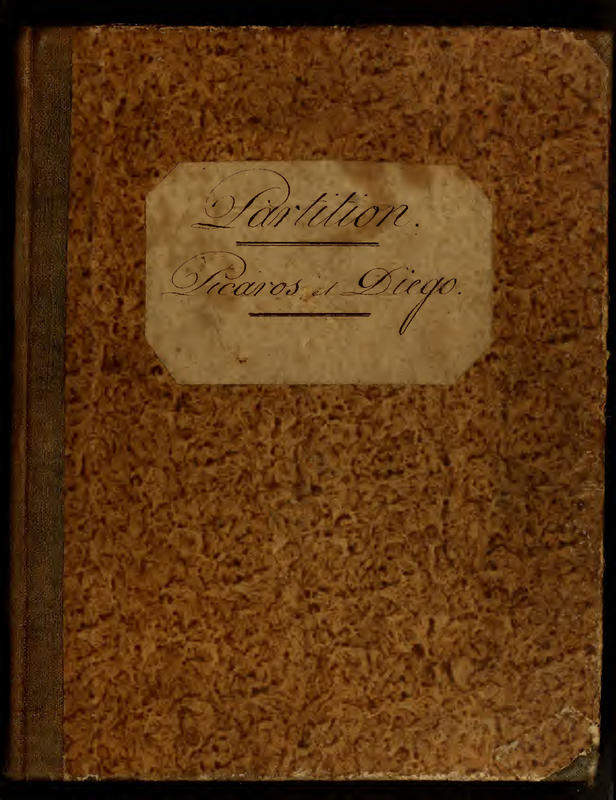 Partition.
Picaros et Diego.